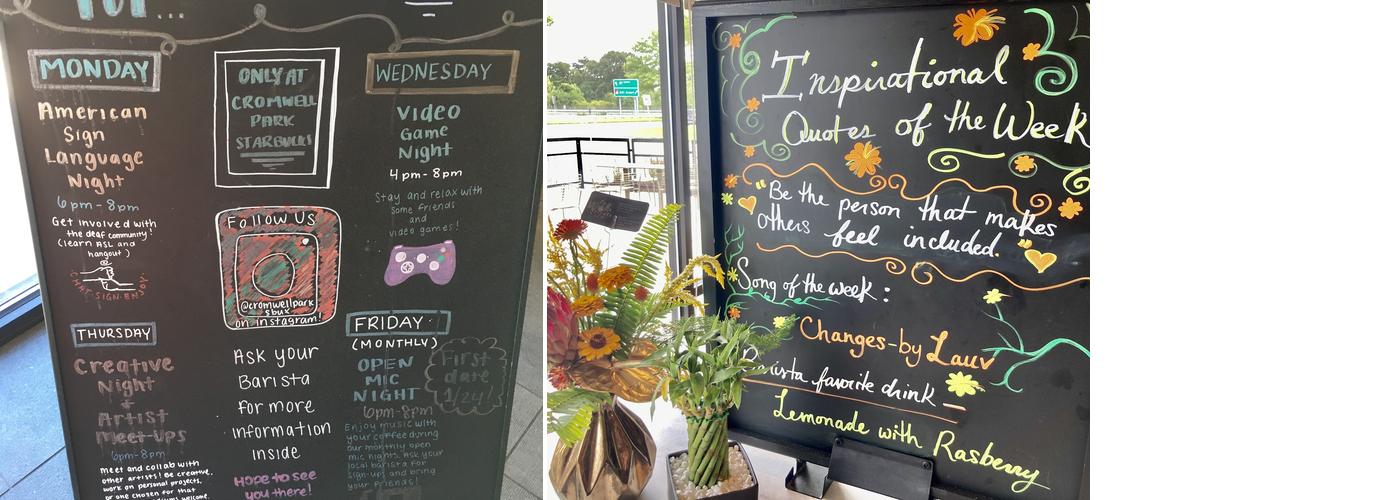 for...
MONDAY
American
Sign
Language
Night
6pm-8pm
Get involved with
the deaf community!
(learn ASL and
hangout)
CHAT·SIGN·ENJOY
THURSDAY
Creative
Night
Artist
Meet-Ups
6pm-8pm
Meet and collab with
other artists! Be creative,
work on personal projects,
or one chosen for that
welcome
ONLY AT
CROMWELL
PARK
STARBUCKS
FOLLOW US
@cromwellpark
sbux
on Instagram!
Ask your
Barista
for more
information
inside
Hope to see
you there!
WEDNESDAY
Video
Game
Night
4pm-8pm
Stay and relax with
some friends
and
video games!
FRIDAY
(MONTHLY)
OPEN
MIC
NIGHT
6pm-8pm
First
date
1/24!
Enjoy music with
your coffee during
our monthly open
mic nights. Ask your
local barista for
sign-ups and bring
your friends!
Inspirational
Quotes of the Week
"Be the person that makes
others feel included."
Song of the week:
Changes-by Lauv
favorite drink
Lemonade with Rasberry